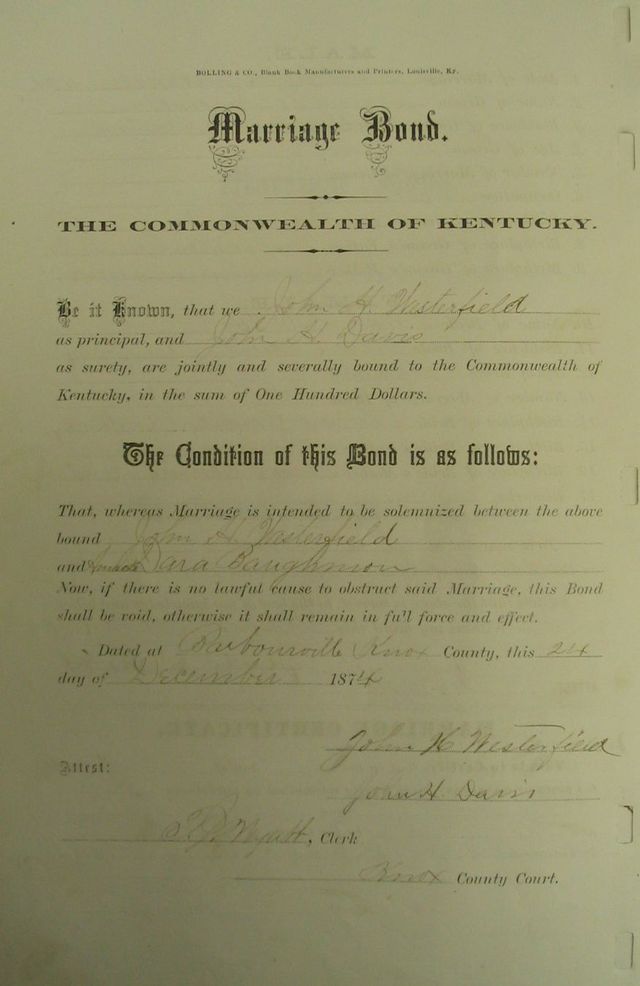 BOLLING & CO., Blank Book Manufacturers and Printers, Louisville, Ky.
Marriage Bond.
THE COMMONWEALTH OF KENTUCKY.
Be it Known, that we John H. Westerfield
as principal, and John H. Davis
as surety, are jointly and severally bound to the Commonwealth of
Kentucky, in the sum of One Hundred Dollars.
The Condition of this Bond is as follows:
That, whereas Marriage is intended to be solemnized between the above
bound John H. Westerfield
and Dara Baughmon
Now, if there is no lawful cause to obstruct said Marriage, this Bond
shall be void, otherwise it shall remain in full force and effect.
Dated at Barbourville Knox County, this 24
day of December 1874
John H Westerfield
Attest:
John H. Davis
Wyatt, Clerk
Knox County Court.